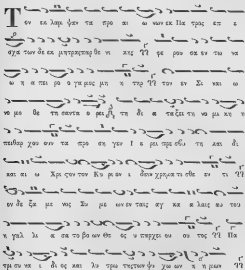 Τ εν εκ λαμ ψαν τα προ αι ω νων εκ Πα τρος ε
σχα των δε εκ μη τρας παρ θε νι κης φε ρου σα εν τω να
ω η α πει ρο γα μος μη τηρ τον εν Σι ναι ω
νο μο θε τη σαντα ο ρει τη δι α τα ξει τη νο μι κη
πειθαρ χουν τα προ ι ε ρει πρε σβυ τη και δι
και αι ω Χρι στον τον Κυ ρι ον ι δειν χρημα τι σθε εν τι
ον δε ξα με νος Συ με ων εν ταις αγ κα λαις αυ του
η γαλ λι α σα το βο ων Θε ος υ παρχει ου τος Πα
τρι συ να ι δι ος και λυ τρω της των ψυ χων η μων